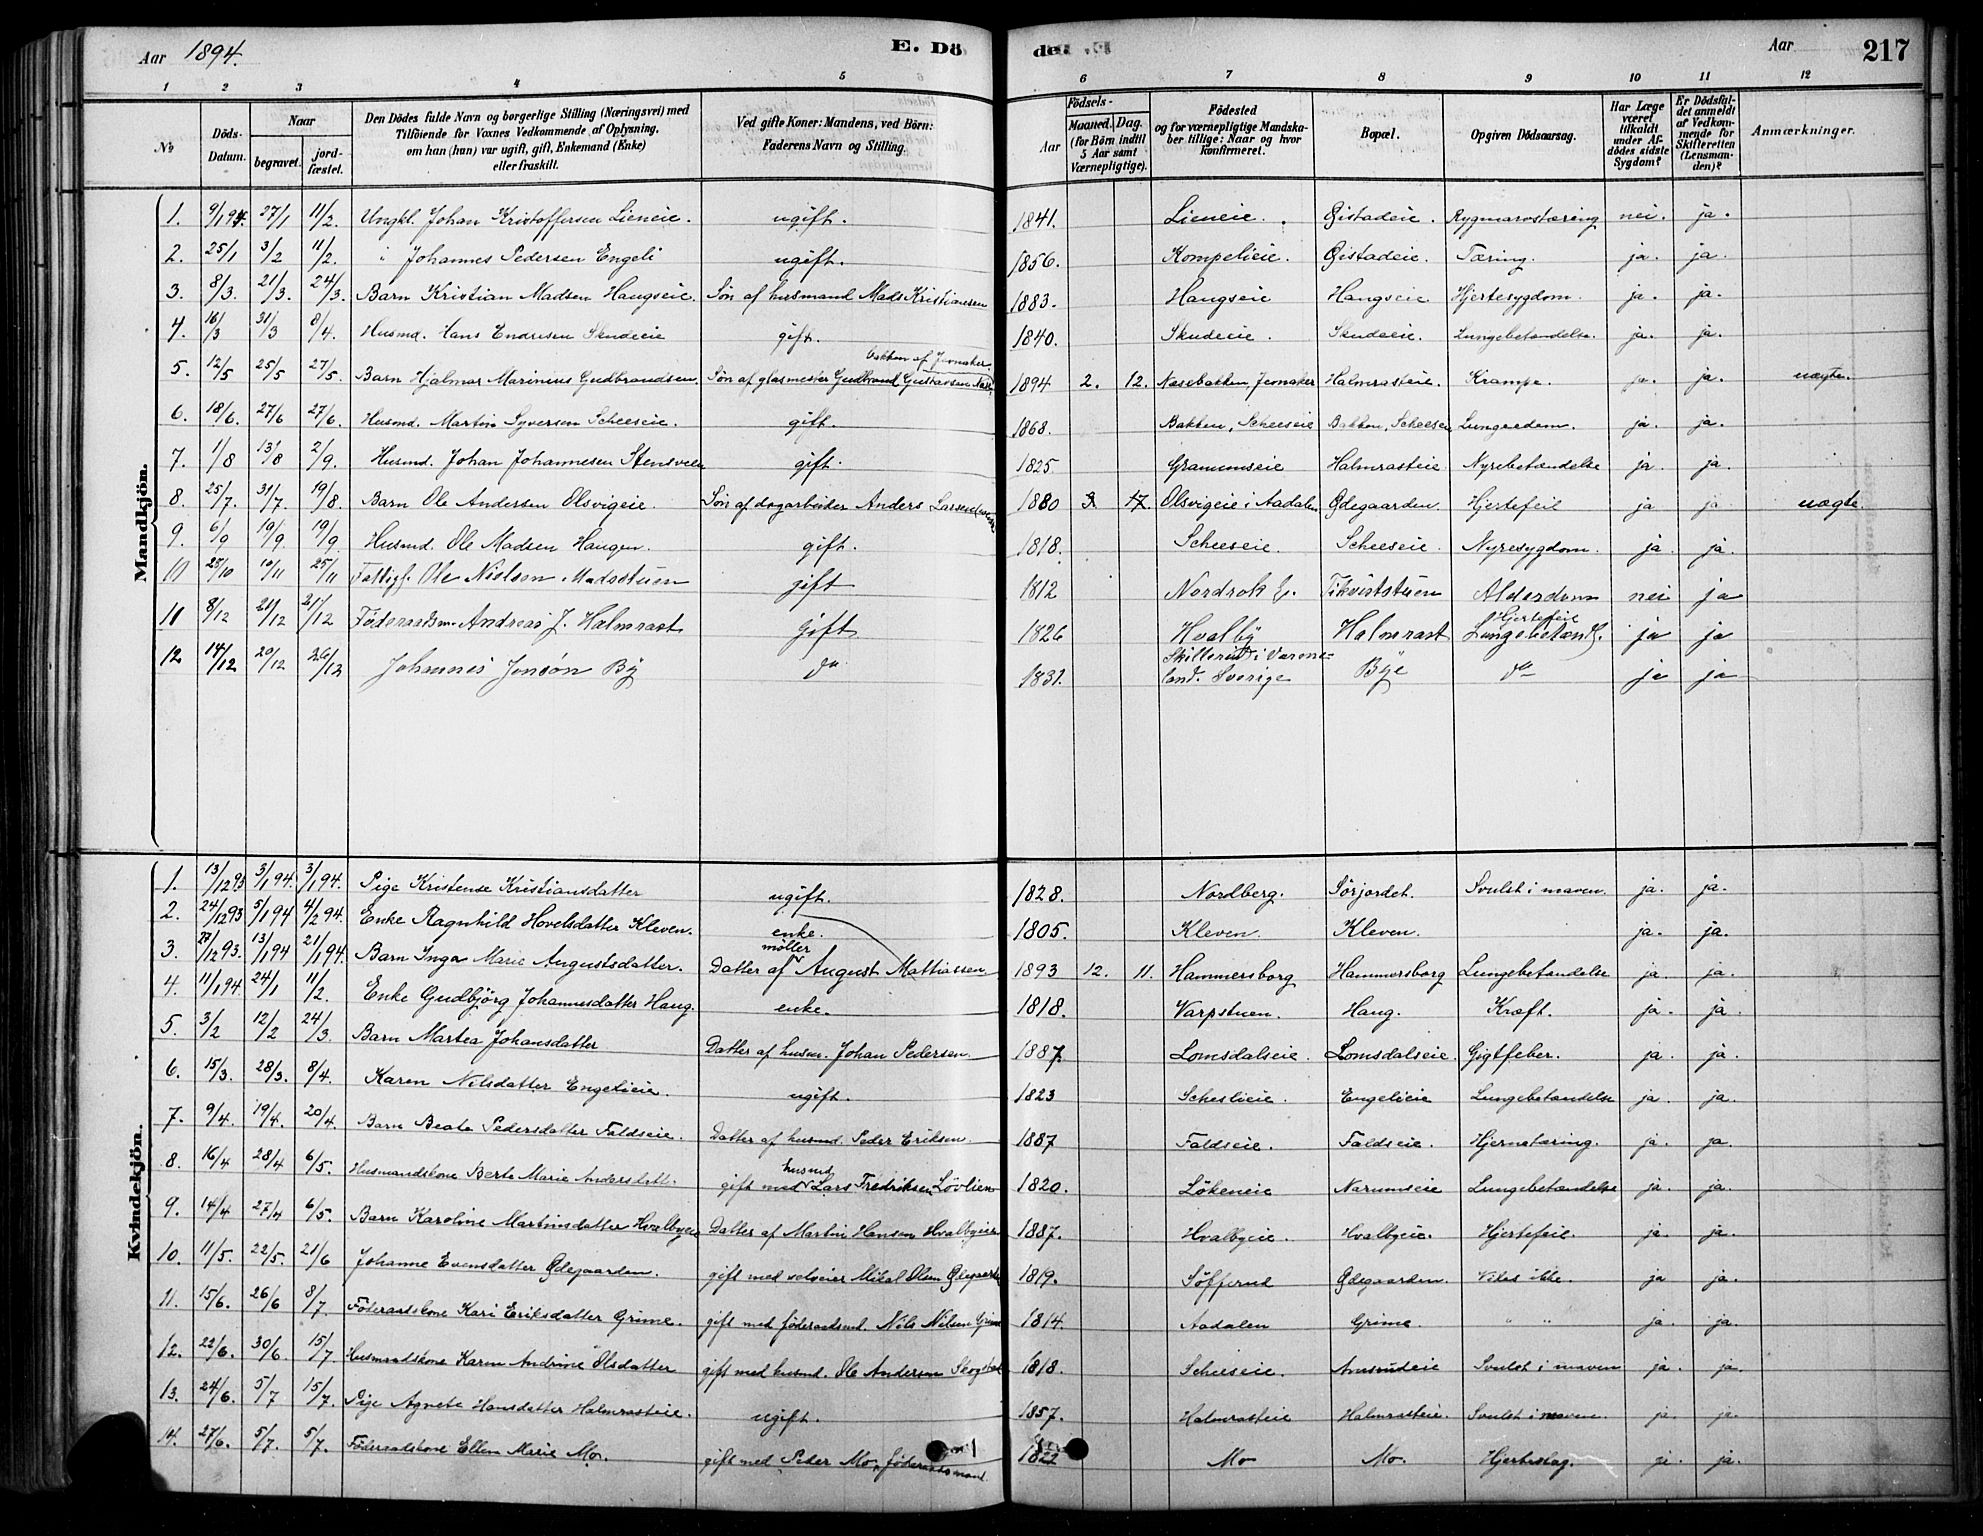 Aar 1894.
E. Dö
de.
Aar
217
1 2 3 4 5 6 7 8 9 10 11 12
No
Döds-Datum.
Naar
begravet.
jord-fæstet.
Den Dödes fulde Navn og borgerlige Stilling (Næringsvei) med
Tilföiende for Voxnes Vedkommende af Oplysning,
om han (hun) var ugift, gift, Enkemand (Enke)
eller fraskilt.
Ved gifte Koner: Mandens, ved Börn:
Faderens Navn og Stilling.
Födsels-
Aar
Maaned. Dag.
(for Börn indtil
5 Aar samt
Værnepligtige).
Födested
og for værnepligtige Mandska-
ber tillige: Naar og hvor
konfirmeret.
Bopæl.
Opgiven Dödsaarsag.
Har Læge
været
tilkaldt
under Af-
dödes sidste
Sygdom?
Er Dödsfal-
det anmeldt
af Vedkom-
mende for
Skifteretten
(Lensman-
den)?
Anmærkninger.
Mandkjön.
1. 9/1 94. 27/1 11/2. Ungkl. Johan Kristoffersen Lieneie. ugift. 1841. Lieneie. Øistadeie. Rygmarvstæring nei. ja.
2. 25/1 3/2 11/2. " Johannes Pedersen Engeli ugift. 1856. Kompelieie. Øistadeie. Tæring. ja. ja.
3. 8/3. 21/3. 24/3. Barn Kristian Madsen Haugseie. Søn af husmand Mads Kristiansen 1883. Haugseie Haugseie Hjertesygdom. ja. ja.
4. 16/3 31/3 8/4. Husmd. Hans Endresen Skudeeie gift. 1840. Skudeeie. Skudeeie. Lungebetændelse. ja. ja.
5. 12/5 25/5 27/5. Barn Hjalmar Marinius Gudbrandsen. Søn af glasmester Gudbrand Gustavsen Næse bakken af Jevnaker. 1894 2. 12. Næsebakken, Jevnaker Halmrasteie. Krampe. ja. ja. uægte.
6. 18/6. 27/6 27/6. Husmd. Martin Syversen Scheeseie. gift. 1868. Bakken, Scheeseie Bakken, Scheeseie ja. ja.
7. 1/8 13/8 2/9. Husmd. Johan Johannesen Stensveen gift. 1825. Granumseie Halmrasteie Nyrebetændelse ja. ja.
8. 25/7. 31/7 19/8. Barn Ole Andersen Olsvigeie. Søn af dagarbeider Anders Larsen 1880 3 17. Olsvigeie i Aadalen Ødegaarden Hjertefeil ja ja uægte.
9. 6/9 19/9. 19/9. Husmd. Ole Madsen Haugen. gift. 1818. Scheeseie. Scheeseie. Nyresygdom. ja. ja.
10 25/10 10/11 25/11 Fattigf. Ole Nielsen Madsstuen gift 1812 Nordrok Tikviststuen Alderdom nei ja
11 8/12 21/12 21/12 Föderaadsm. Andreas J. Halmrast Gift 1826 Hvalby Halmrast Hjertefeil Lungebetænd. ja ja
12 14/12 20/12 26/12 Johannes Jonsøn By do 1831. Skillerud i Værme-
land. Sverige Bye do ja ja
Kvindekjön.
1. 13/12 93 3/1 94. 3/1 94. Pige Kristense Kristiansdatter ugift. 1828. Nordberg. Sørjordet. Svulst i maven. ja. ja.
2. 24/12 93 5/1 94 4/2 94. Enke Ragnhild Hovelsdatter Kleven. enke. 1805. Kleven. Kleven. ja. ja.
3. 27/12 93. 13/1 94 21/1 94. Barn Inga Marie Augustsdatter. Datter af møller August Mattiassen 1893 12. 11. Hammersborg Hammersborg Lungebetændelse ja. ja.
4. 11/1 94. 24/1 11/2. Enke Gudbjörg Johannesdatter Haug. enke. 1818. Varpstuen. Haug. Kræft. ja. ja.
5. 3/2 12/2 24/3. Barn Martea Johansdatter Datter af husm. Johan Pedersen. 1887. Lomsdalseie. Lomsdalseie. Gigtfeber. ja. ja.
6. 15/3. 28/3. 8/4. Karen Nilsdatter Engelieie. ugift. 1823 Scheslieie. Engelieie Lungebetændelse ja. ja.
7. 9/4. 19/4. 20/4. Barn Beate Pedersdatter Faldseie. Datter af husmd. Peder Eriksen. 1887 Faldseie. Faldseie. Hjernetæring. ja. ja.
8. 16/4 28/4 6/5. Husmandskone Berte Marie Andersdatt. gift med husmd Lars Fredriksen Løvlien 1820. Lökeneie Narumseie Lungebetændelse ja. ja.
9. 14/4 27/4 6/5. Barn Karoline Martinsdatter Hvalbyeie Datter af Martin Hansen Hvalbyeie 1887. Hvalbyeie. Hvalbyeie. Hjertefeil. ja. ja.
10. 11/5. 22/5. 21/6 Johanne Evensdatter Ødegaarden. gift med selveier Mikal Olsen Ødegaarden 1819. Söfferud Ødegaarden. Vides ikke. ja ja.
11. 15/6. 26/6 8/7. Föderaadskone Kari Eriksdatter Grime. gift med föderaadsmd. Nils Nilsen Grime 1814. Aadalen Grime. " " ja. ja.
12. 22/6. 30/6 15/7. Husmandskone Karen Andrine Olsdatter gift med husmd. Ole Andersen Skogstad 1818. Scheeseie. Amsrudeie Svulst i maven ja. ja
13. 24/6. 5/7 15/7. Pige Agnete Hansdatter Halmrasteie. ugift. 1857. Halmrasteie Halmrasteie. Svulst i maven. ja. ja.
14. 27/6. 5/7. 5/7. Föderaadskone Ellen Marie Mo. gift med Peder Mo, föderaadsmand. 1822 Mo Mo. Hjerteslag. ja. ja.